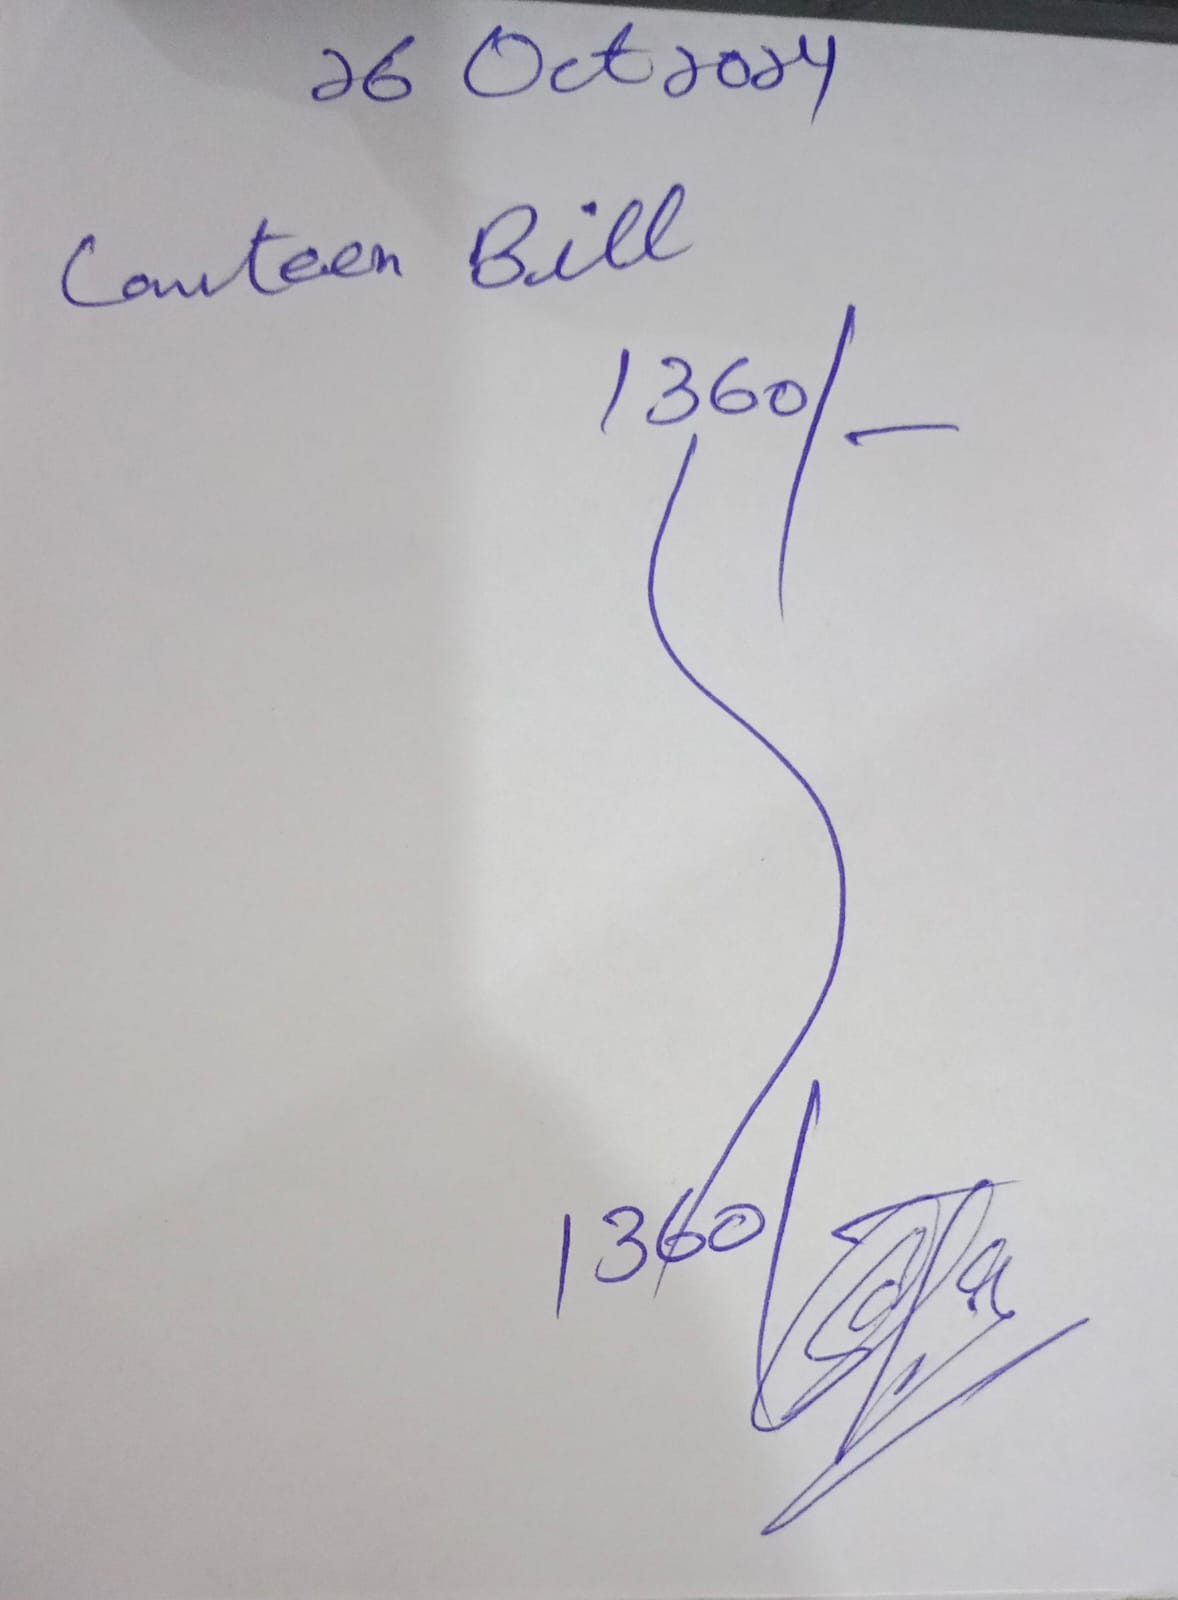 26 Oct 2024
Canteen Bill
1360/-
1360/